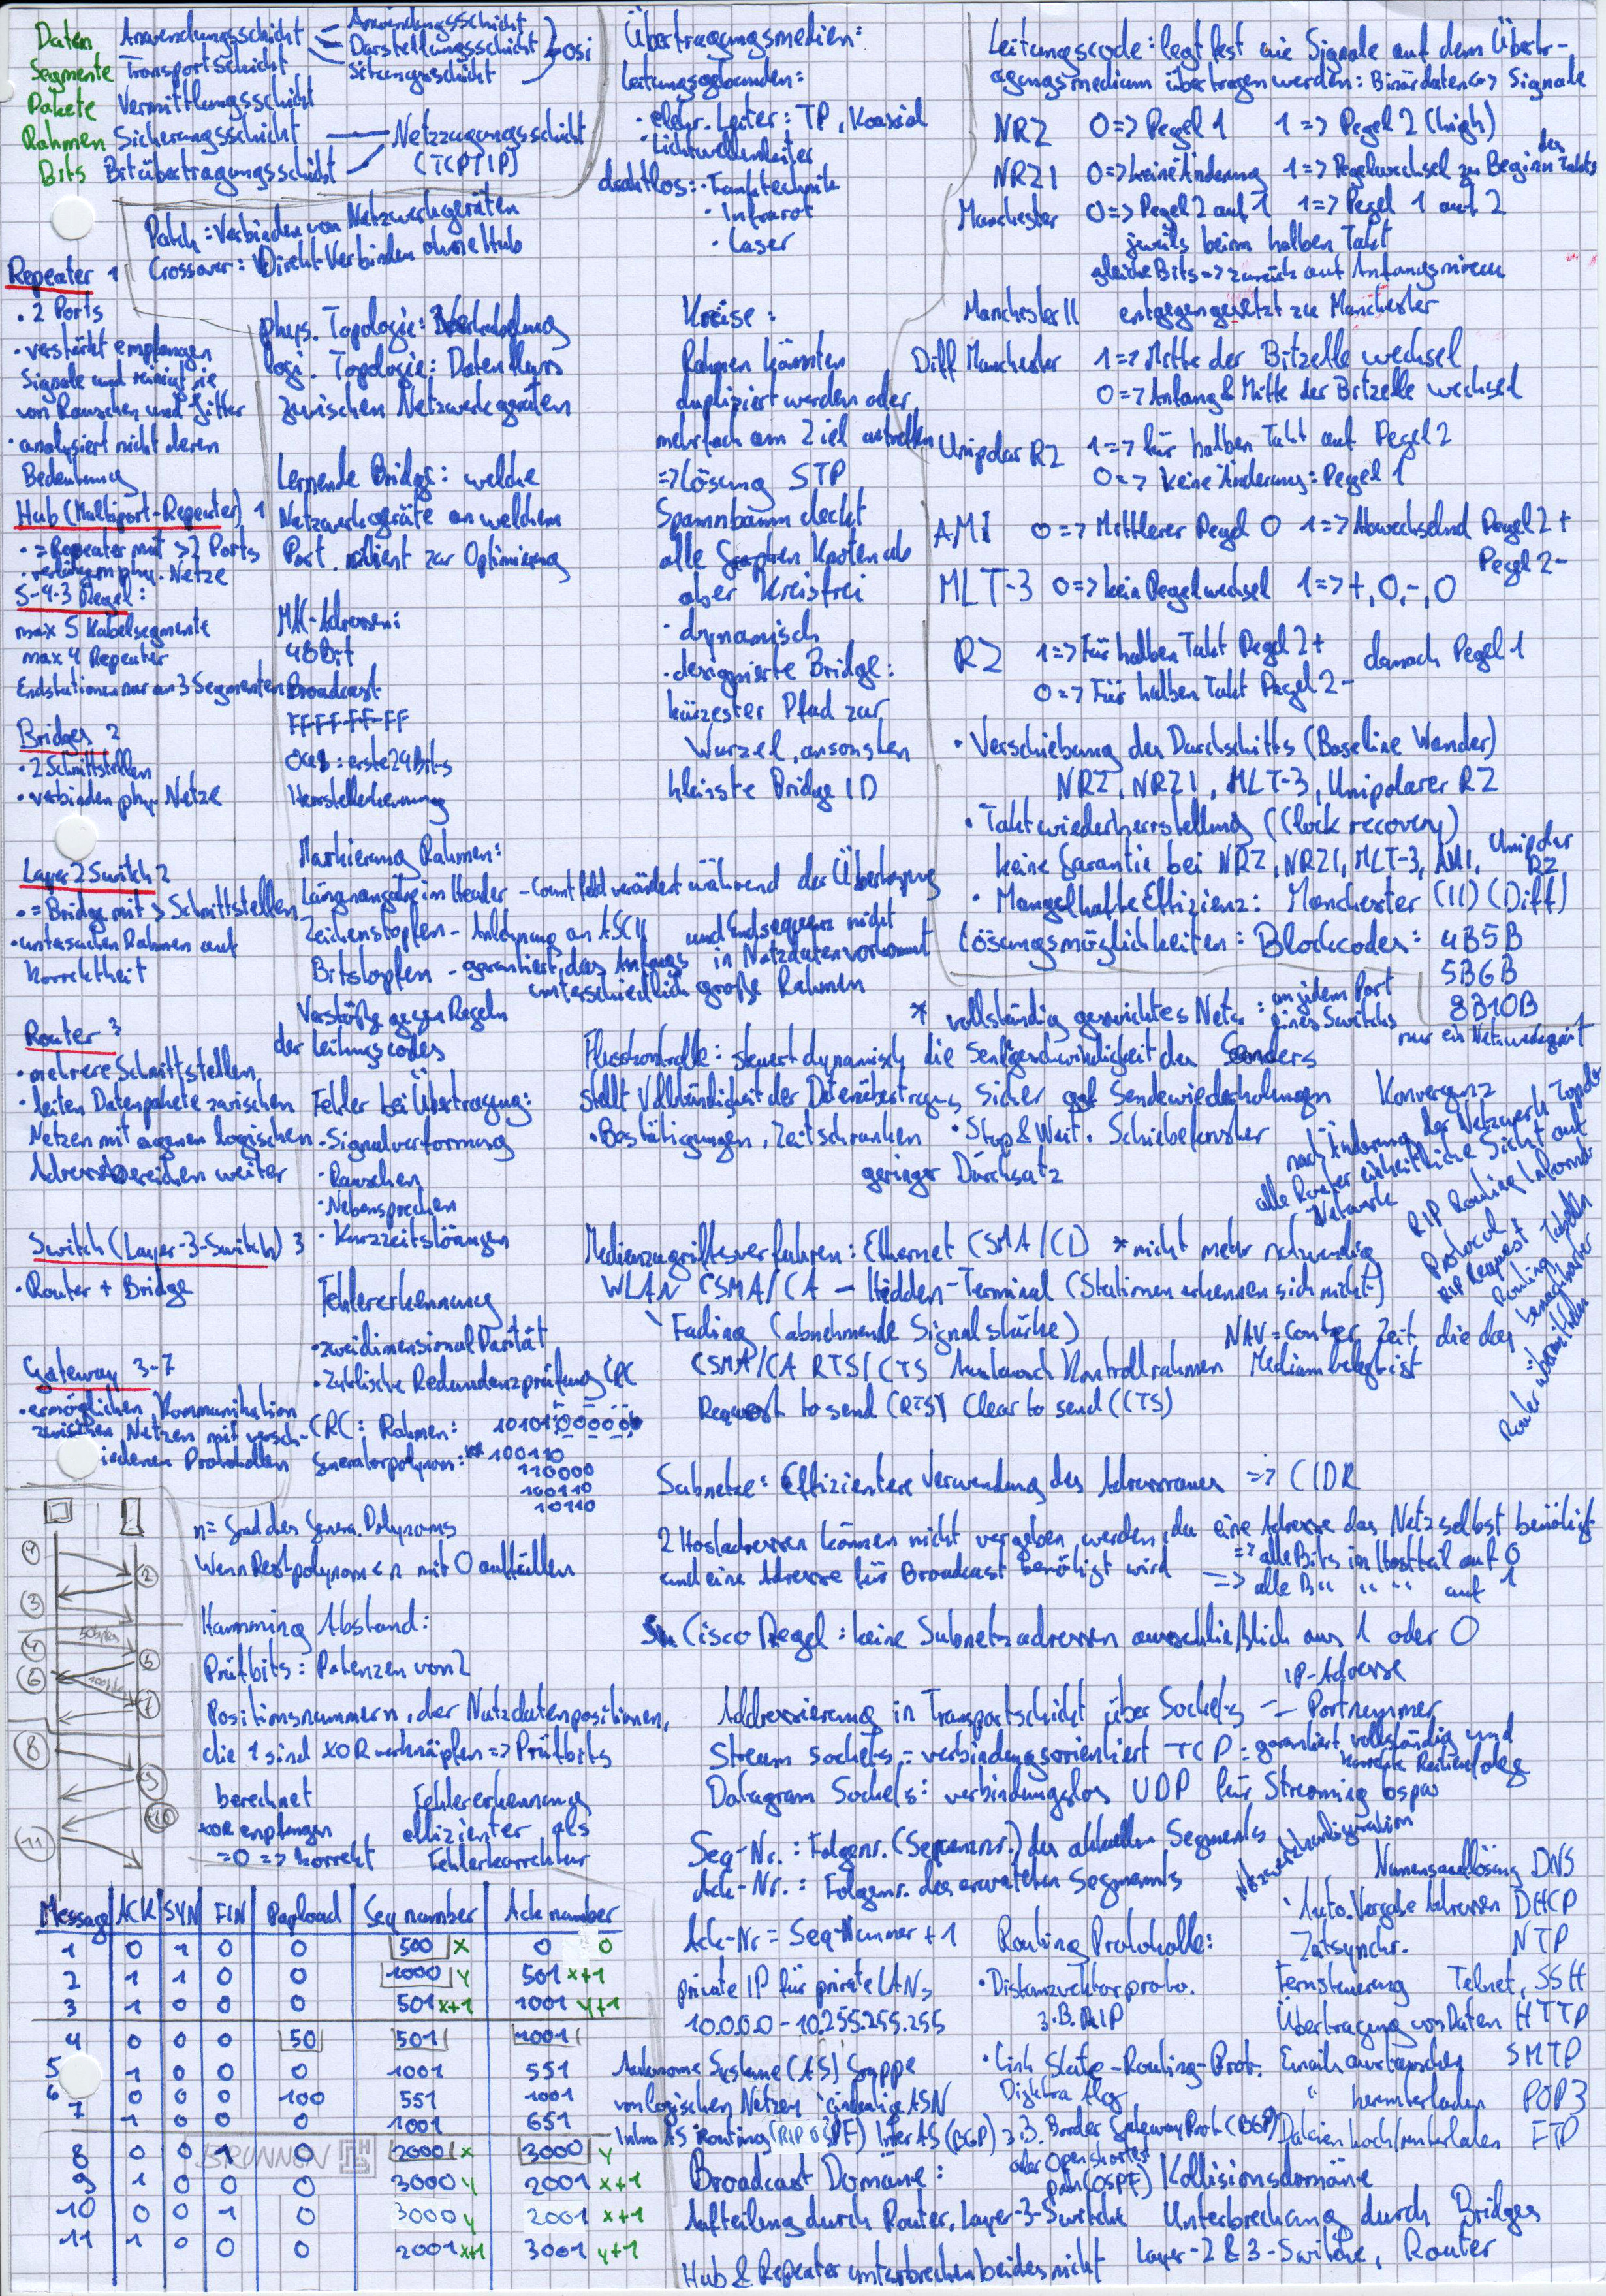 Daten Anwendungsschicht
Anwendungsschicht
Darstellungsschicht
Sitzungsschicht
OSI
Segmente Transportschicht
Pakete Vermittlungsschicht
Rahmen Sicherungsschicht
Bits Bitübertragungsschicht
Netzzugangsschicht
(TCP/IP)
Patch: Verbinden von Netzwerkgeräten
Crossover: Direkt Verbinden ohne Hub
Repeater 1
· 2 Ports
· verstärkt empfangen
Signale und reinigt sie
von Rauschen und Jitter
· analysiert nicht deren
Bedeutung
Hub (Multiport-Repeater) 1
· = Repeater mit >2 Ports
· verlängern phy. Netze
5-4-3 Regel:
max 5 Kabelsegmente
max 4 Repeater
Endstationen nur an 3 Segmenten
Bridges 2
· 2 Schnittstellen
· verbinden phy. Netze
Layer 2 Switch 2
· = Bridge mit > Schnittstellen
· untersuchen Rahmen auf
Korrektheit
Router 3
· mehrere Schnittstellen
· leiten Datenpakete zwischen
Netzen mit eigenen logischen
Adressbereichen weiter
Switch (Layer-3-Switch) 3
· Router + Bridge
Gateway 3-7
· ermöglichen Kommunikation
zwischen Netzen mit versch-
iedenen Protokollen
phys. Topologie: Verkabelung
logi. Topologie: Datenfluss
zwischen Netzwerkgeräten
Lernende Bridge: welche
Netzwerkgeräte an welchem
Port. dient zur Optimierung
MAC-Adressen:
48 Bit
Broadcast
FF FF-FF-FF
: erste 24 Bits
Herstellerkennung
Markierung Rahmen:
Längenangabe im Header - Count feld verändert während der Übertragung
Zeichenstopfen - Anlehnung an ASCII
Bitstopfen - garantiert, das Anfangs und Endsequenz nicht in Nutzdaten vorkommt
unterschiedlich große Rahmen
Verstöße gegen Regeln
der Leitungscodes
Fehler bei Übertragung:
· Signalverformung
· Rauschen
· Nebensprechen
· Kurzzeitstörungen
Fehlererkennung
· zweidimensional Parität
· Zyklische Redundanzprüfung CRC
CRC: Rahmen: 1010100000
Generatorpolynom: 100110
110000
100110
10110
n = Grad des Genera. Polynoms
Wenn Restpolynom < n mit 0 auffüllen
Hamming Abstand:
Prüfbits: Potenzen von 2
Positionsnummern, der Nutzdatenpositionen,
die 1 sind XOR verknüpfen => Prüfbits
berechnet
XOR empfangen
= 0 => korrekt
Fehlererkennung
effizienter als
Fehlerkorrektur
Übertragungsmedien:
Leitungsgebunden:
· elektr. Leiter: TP, Koaxial
· Lichtwellenleiter
drahtlos: · Funktechnik
· Infrarot
· Laser
Kreise:
Rahmen könnten
dupliziert werden oder
mehrfach am Ziel antreffen
=> Lösung STP
Spannbaum deckt
alle Knoten ab
aber Kreisfrei
· dynamisch
· designierte Bridge:
kürzester Pfad zur
Wurzel, ansonsten
kleinste Bridge ID
Leitungscode: legt fest wie Signale auf dem Übertr-
agungsmedium übertragen werden: Binärdaten <=> Signale
NRZ 0 => Pegel 1 1 => Pegel 2 (high)
NRZI 0 => keine Änderung 1 => Pegelwechsel zu Beginn des Takts
Manchester 0 => Pegel 2 auf 1 1 => Pegel 1 auf 2
jeweils beim halben Takt
gleiche Bits => zurück auf Anfangsniveau
Manchester II entgegengesetzt zu Manchester
Diff Manchester 1 => Mitte der Bitzelle wechsel
0 => Anfang & Mitte der Bitzelle wechsel
Unipolar RZ 1 => für halben Takt auf Pegel 2
0 => keine Änderung: Pegel 1
AMI 0 => Mittlerer Pegel 0 1 => Abwechselnd Pegel 2 +
Pegel 2 -
MLT-3 0 => kein Pegelwechsel 1 => +, 0, -, 0
RZ 1 => Für halben Takt Pegel 2+ danach Pegel 1
0 => Für halben Takt Pegel 2-
· Verschiebung des Durchschitts (Baseline Wander)
NRZ, NRZI, MLT-3, Unipolarer RZ
· Taktwiederherrstellung (Clock recovery)
keine Garantie bei NRZ, NRZI, MLT-3, AMI, Unipolar RZ
· Mangelhafte Effizienz: Manchester (II) (Diff)
Lösungsmöglichkeiten: Blockcodes: 4B5B
5B6B
8B10B
* vollständig geswichtes Netz: an jedem Port
eines Switchs nur ein Netzwerkgerät
Flusskontrolle: steuert dynamisch die Sendgeschwindigkeit des Senders
stellt Vollständigkeit der Datenübertragung sicher ggf Sendewiederholungen
· Bestätigungen, Zeitschranken · Stop & Wait, Schiebefenster
geringer Durchsatz
Konvergenz
nach Änderung der Netzwerk Topolo
alle Router einheitliche Sicht auf
Netzwerk
RIP Routing Informat
Protocol
RIP Request +
Routing Tabellen
benachbarter
Router übermitteln
Medienzugriffsverfahren: Ethernet CSMA/CD * nicht mehr notwendig
WLAN CSMA/CA - Hidden-Terminal (Stationen erkennen sich nicht)
Fading (abnehmende Signalstärke)
NAV = Counter Zeit die das
Medium belegt ist
CSMA/CA RTS/CTS Austausch Kontrollrahmen
Request to send (RTS) Clear to send (CTS)
Subnetze: Effizientere Verwendung des Adressraumes => CIDR
2 Hostadressen können nicht vergeben werden, da eine Adresse das Netz selbst benötigt
und eine Adresse für Broadcast benötigt wird
=> alle Bits im Hostteil auf 0
=> alle B" " " auf 1
Cisco Regel: keine Subnetzadressen ausschließlich aus 1 oder 0
Addressierung in Transportschicht über Sockets
IP-Adresse
- Portnummer
Stream sockets = verbindungsorientiert TCP: garantiert vollständig und
korrekte Reihenfolge
Datagram Sockets: verbindungslos UDP für Streaming bspw
Seq-Nr.: Folgenr. (Sequenznr.) des aktuellen Segments
Ack-Nr.: Folgenr. des erwarteten Segments
Ack-Nr = Seq-Nummer + 1
Netzwerkkonfiguration
Namensauflösung DNS
Auto. Vergabe Adressen DHCP
Zeitsynchr. NTP
Fernsteuerung Telnet, SSH
Übertragung von Daten HTTP
Email austauschen SMTP
" herunterladen POP3
Dateien hoch/runterladen FTP
private IP für private LANs
10.0.0.0 - 10.255.255.255
Routing Protokolle:
· Distanzvektorproto.
z.B. RIP
· Link State-Routing-Prot.
Dijkstra Alg
z.B. Border Gateway Prot. (BGP)
oder Open Shortest
path (OSPF)
Autonome Systeme (AS) Gruppe
von logischen Netzen, eindeutige ASN
Intra AS Routing (RIP o. OSPF) Inter AS (BGP)
Broadcast Domäne:
Aufteilung durch Router, Layer-3-Switche
Kollisionsdomäne
Unterbrechung durch Bridges
Layer-2 & 3-Switche, Router
Hub & Repeater unterbrechen beides nicht
1
2
3
4
50bytes
5
6
100bytes
7
8
9
10
11
Message ACK SYN FIN Payload Seq number Ack number
1 0 1 0 0 500 x 0 0
2 1 1 0 0 1000 y 501 x+1
3 1 0 0 0 501 x+1 1001 y+1
4 0 0 0 50 501 1001
5 1 0 0 0 1001 551
6 0 0 0 100 551 1001
7 1 0 0 0 1001 651
8 0 0 1 0 2000 x 3000 y
9 1 0 0 0 3000 y 2001 x+1
10 0 0 1 0 3000 y 2001 x+1
11 1 0 0 0 2001 x+1 3001 y+1
BRUNNEN